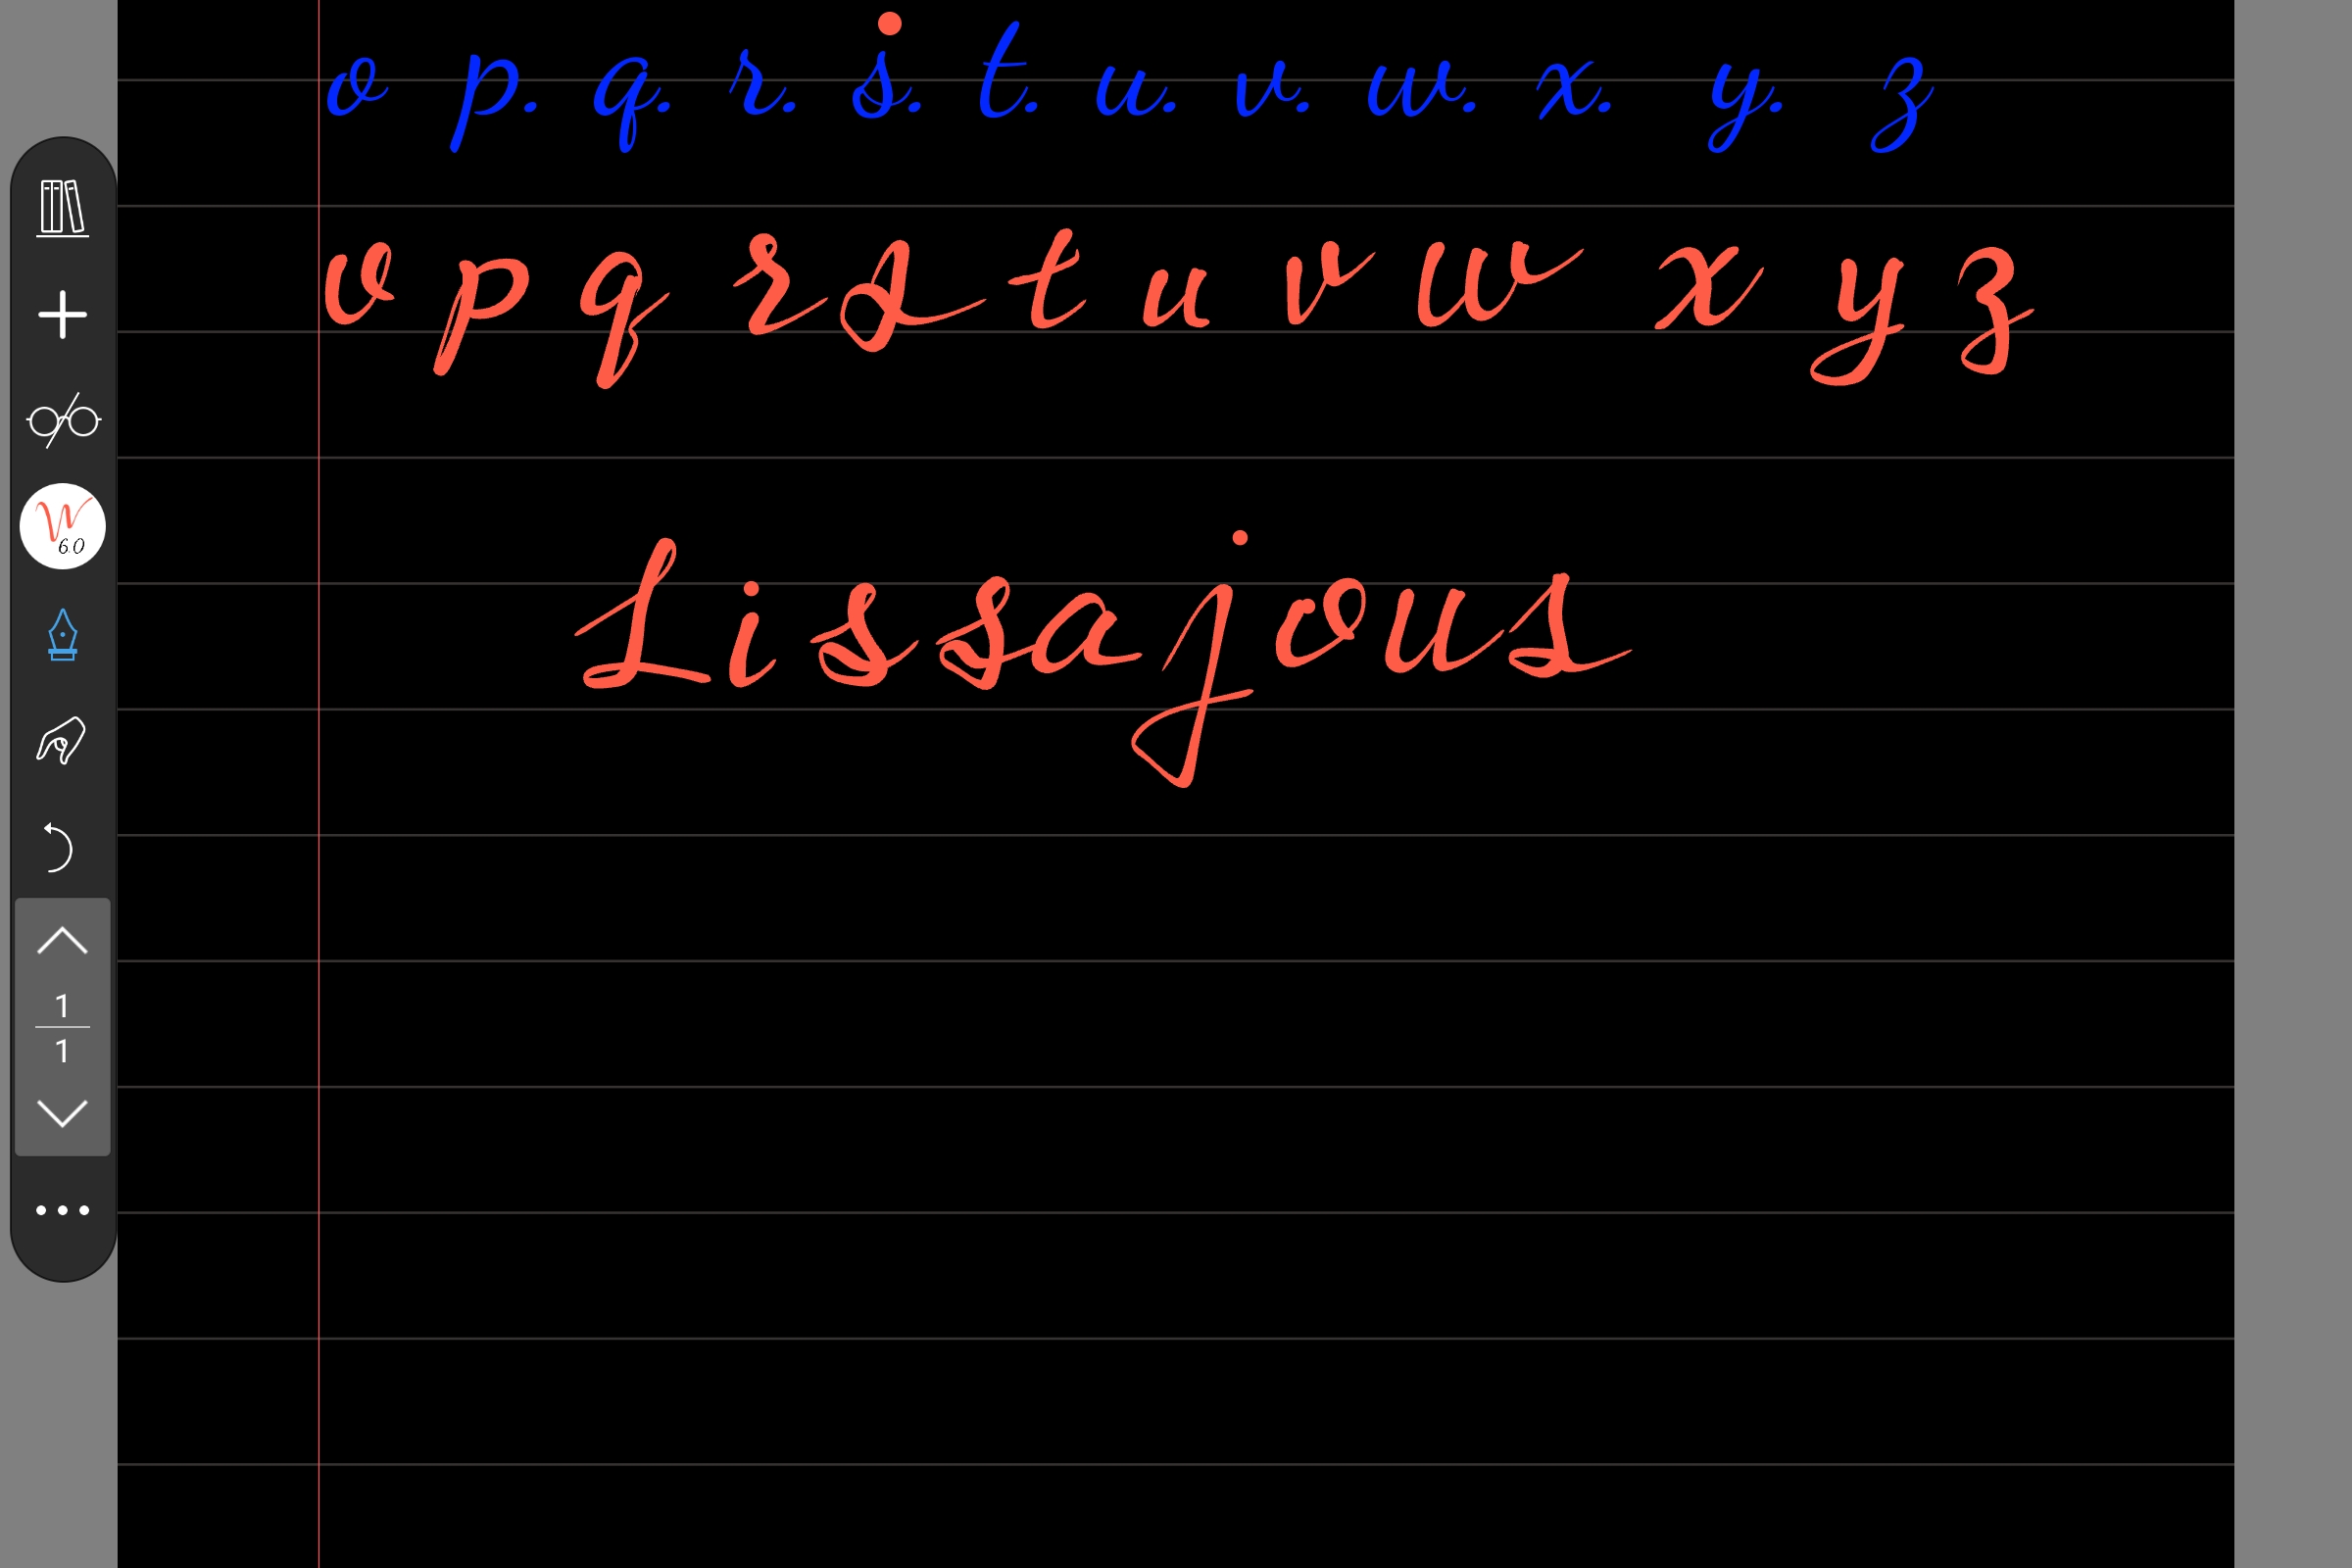 o p. q. r. s. t. u. v. w. x. y. z
o p q r s t u v w x y z
Lissajous
6.0
1
1